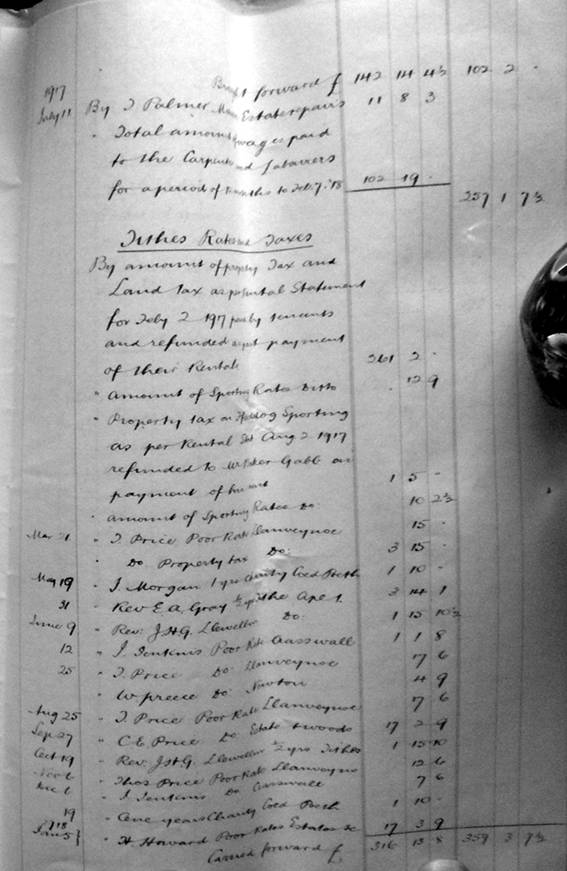 Brought forward £ 142 14 4½ 102 2 -
1917
July 11 By T Palmer Estate repairs 11 8 3
" Total amount of wages paid
to the Carpenter and Labourers
for a period of months to Feb. 7. '18 102 19 -
257 1 7½
Tithes Rates and Taxes
By amount of property Tax and
Land tax as per rental Statement
for Feby 2 1917 paid by tenants
and refunded as part payment
of their Rentals 261 2 -
" amount of Sporting Rates Ditto 12 9
" Property tax on Sporting
as per Rental Aug 2 1917
refunded to Mr Gabb on
payment of his rent 1 5 -
" amount of Sporting Rates Do: 10 2½
Mar 21 " T. Price Poor Rate Llanveynoe 15 -
" Do Property tax Do: 3 15 -
May 19 " J. Morgan 1 yrs Charity Coed Poeth 1 10 -
31 " Rev E. A. Gray ½ yrs tithe 3 14 1
June 9 " Rev: J.H.G. Llewellin Do: 1 15 10½
12 " J. Jenkins Poor Rate Casswall 1 1 8
25 " T. Price Do: Llanveynoe 7 6
" W. Preece Do: Newton 4 9
Aug 25 " T. Price Poor Rate Llanveynoe 7 6
Sep 27 " C.E. Price Do Estate & woods 17 2 9
Oct 19 " Rev. J.H.G. Llewellin ½ yrs Tithes 1 15 10
Nov 6 " Thos Price Poor Rate Llanveynoe 12 6
Dec 6 " J. Jenkins Do Casswall 7 6
19 " One years Charity Coed Poeth 1 10 -
1918 Jan 5 " H Howard Poor Rates Estates &c 17 3 9
Carried forward £ 316 13 8 359 3 7½